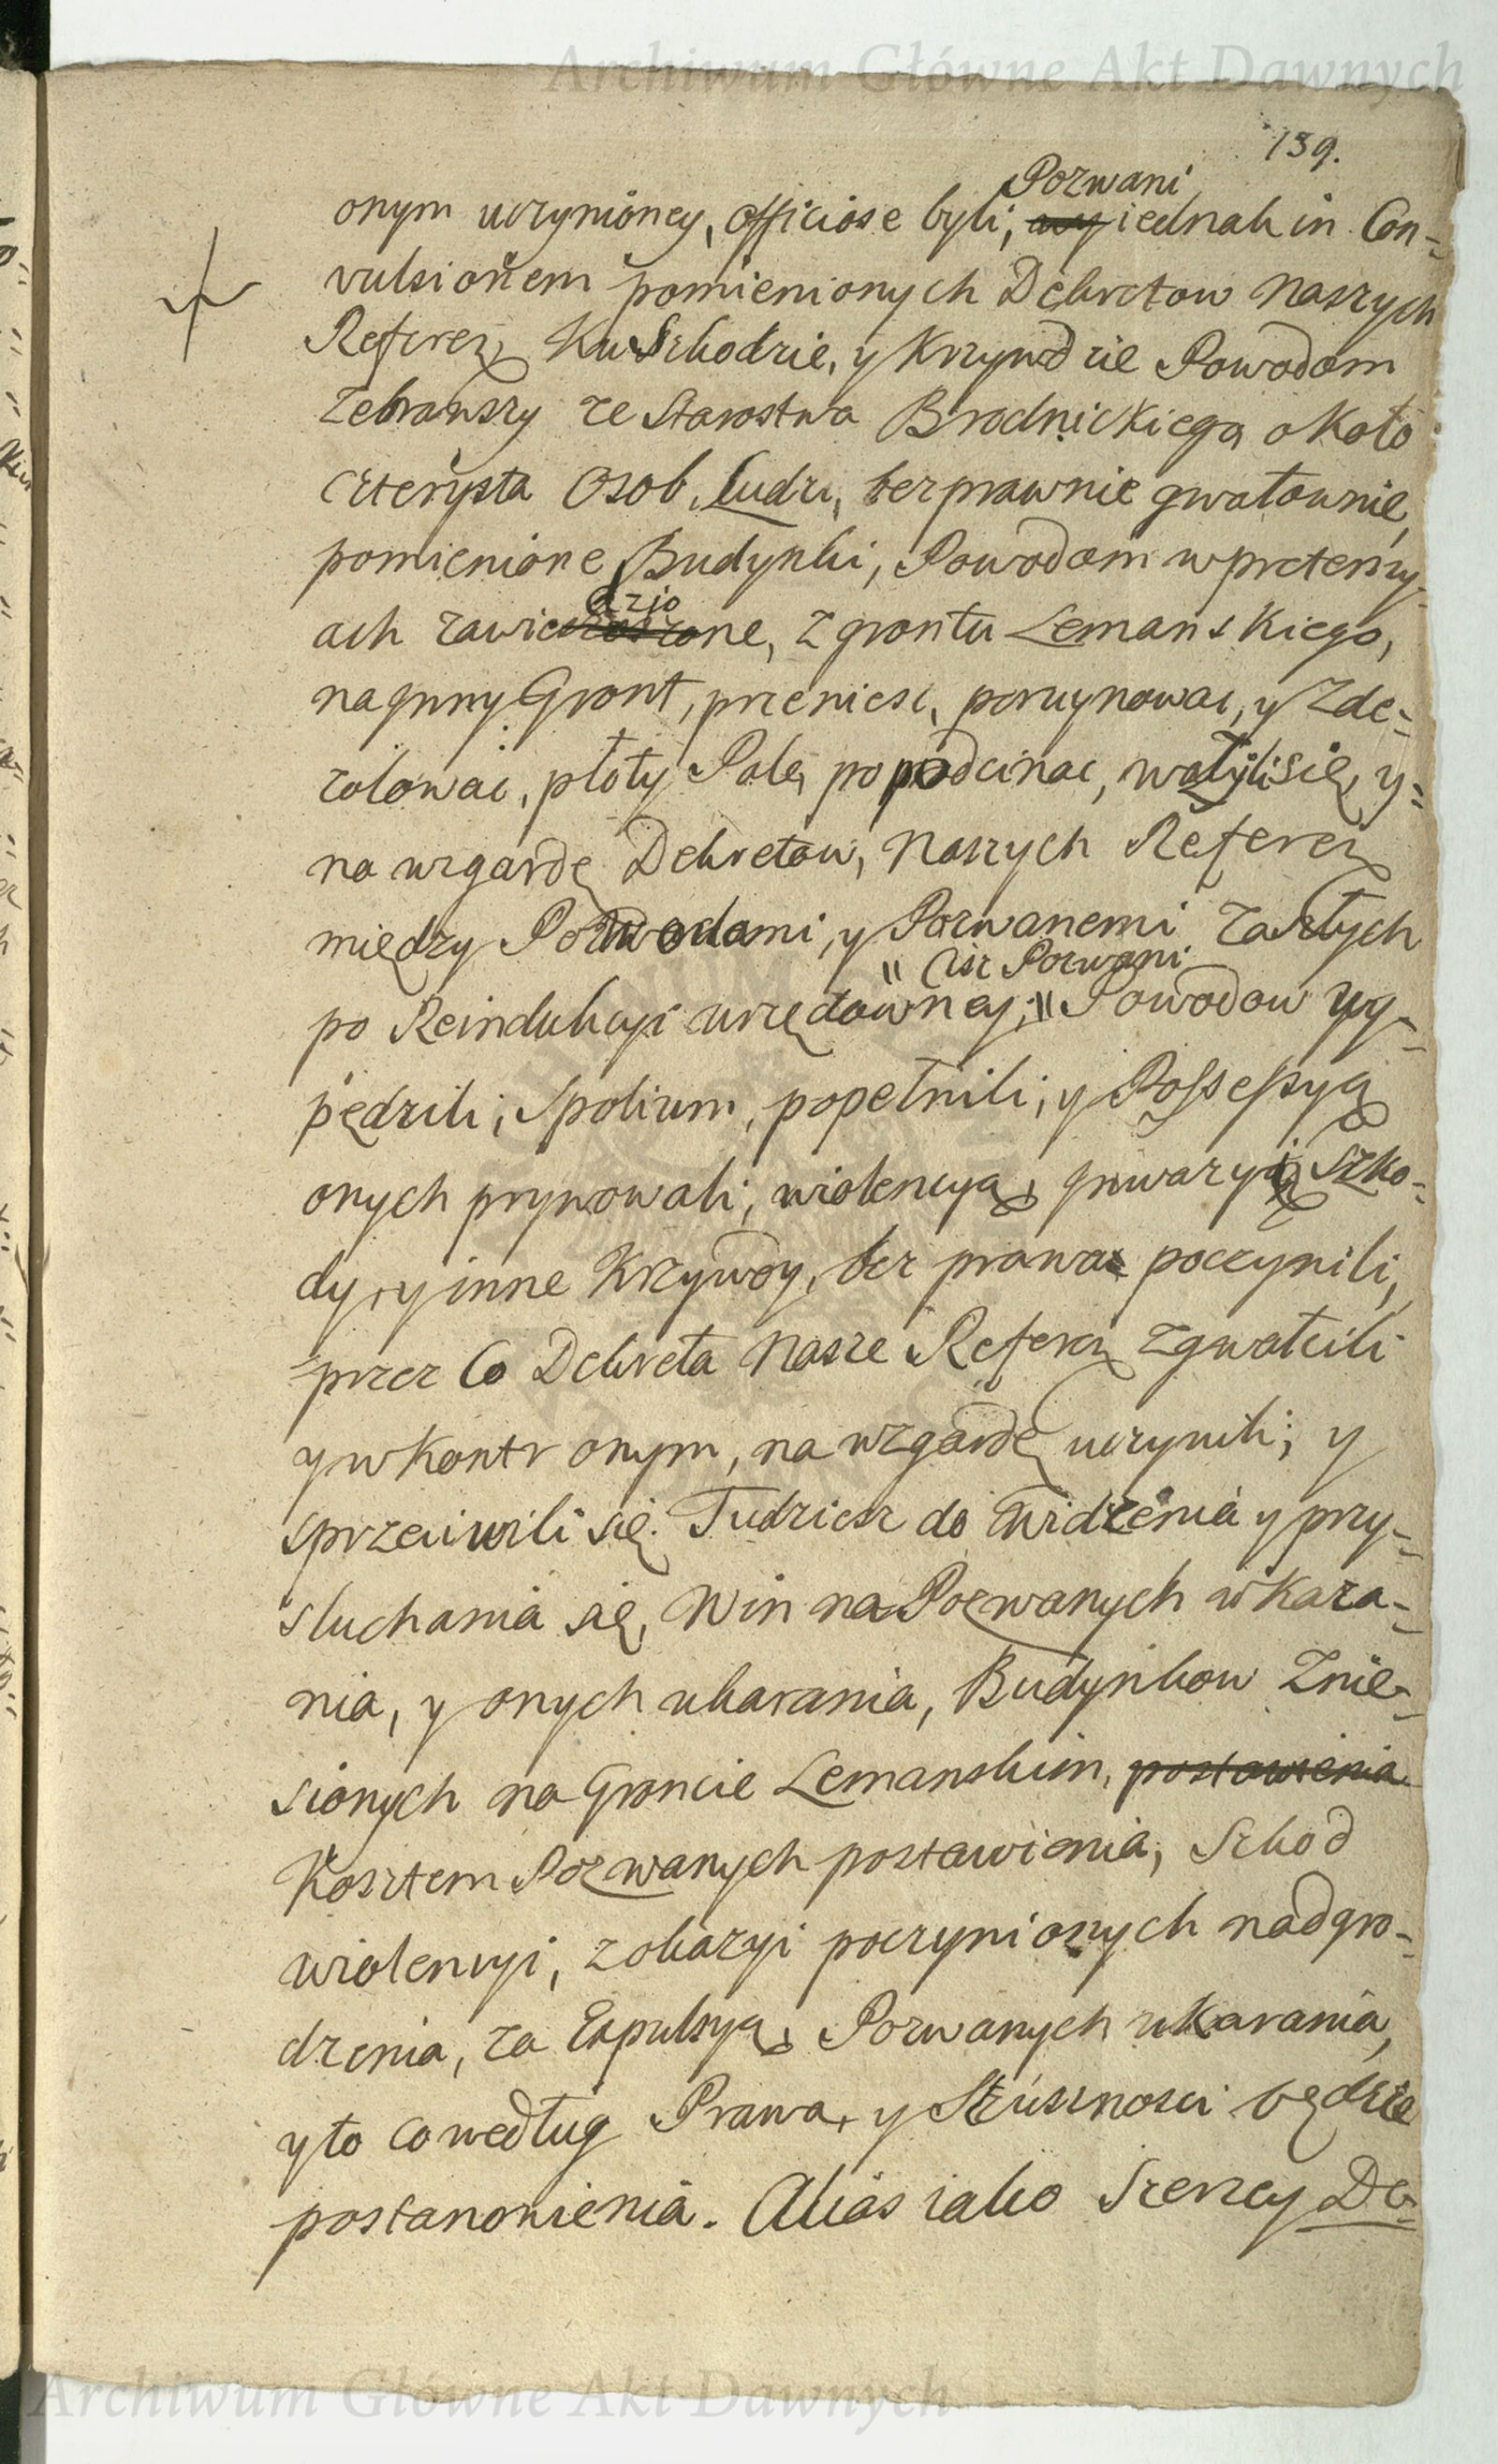 Archiwum Główne Akt Dawnych
139.
Pozwani
onym uczynioney, officiose byli, iednak in Con-
vulsionem pomienionych Dekretow Naszych
Referen Ku Szkodzie, y Krzywdzie Powodom
Zebrawszy ze Starostwa Brodnickiego około
czterysta Osob, Ludzi, bezprawnie gwałtownie,
pomienione Budynki, Powodom w pretensy-
dzio
ach zawie zone, z grontu Lemanskiego,
na ynny Gront, przeniesc, poruynowac, y Zde-
zolowac, płoty Pale, popodcinac, ważyli się, y-
na wzgardę Dekretow, Naszych Referen
między Powodami, y Pozwanemi Zaszłych
" Ciż Pozwani
po Reindukcyi urzędowney; " Powodow wy-
pędzili; Spolium, popełnili; y Possessyą
onych prywowali; wiolencyą, gwarzyą Szko-
dy, y inne Krzywdy, bez prawa poczynili,
przez Co Dekreta Nasze Referen zgwałcili
y w Kontr onym, na wzgardę uczynili; y
sprzeciwili się. Tudziesz do widzenia y przy-
słuchania się, Win na Pozwanych wkaza-
nia, y onych ukarania, Budynkow Znie-
sionych na Groncie Lemanskim, postawienia
Kosztem Pozwanych postawienia, Szkod
wiolencyi, z okazyi poczynionych nadgro-
dzenia, za Expulsyą, Pozwanych ukarania,
y to co według Prawa, y Słusznosci będzie
postanowienia. Alias iako Szerzey De-
Archiwum Główne Akt Dawnych